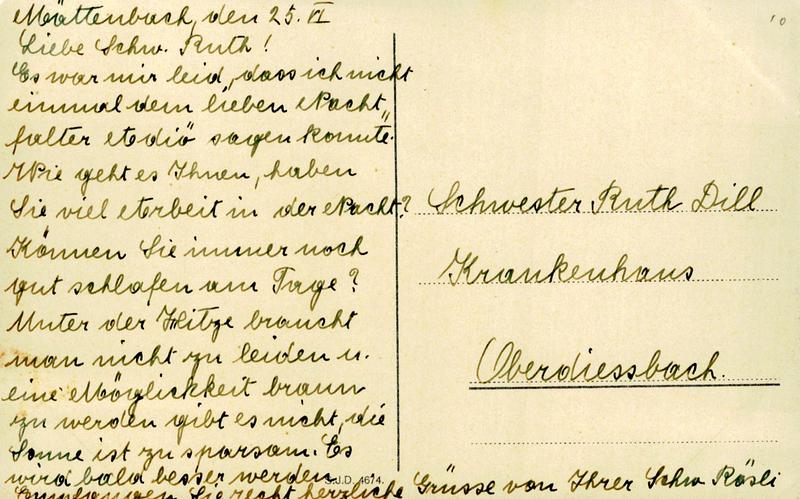 Mättenbach, den 25. VI
Liebe Schw. Ruth!
Es war mir leid, dass ich nicht
einmal dem lieben Nacht„
falter Adiö sagen konnte.
Wie geht es Ihnen, haben
Sie viel Arbeit in der Nacht?
Können Sie immer noch
gut schlafen am Tage?
Unter der Hitze braucht
man nicht zu leiden u.
eine Möglickkeit braun
zu werden gibt es nicht, die
Sonne ist zu sparsam. Es
wird bald besser werden.
Empfangen Sie recht herzliche Grüsse von Ihrer Schw. Rösli
Schwester Ruth Dill
Krankenhaus
Oberdiessbach.
S.J.D. 4674.
10